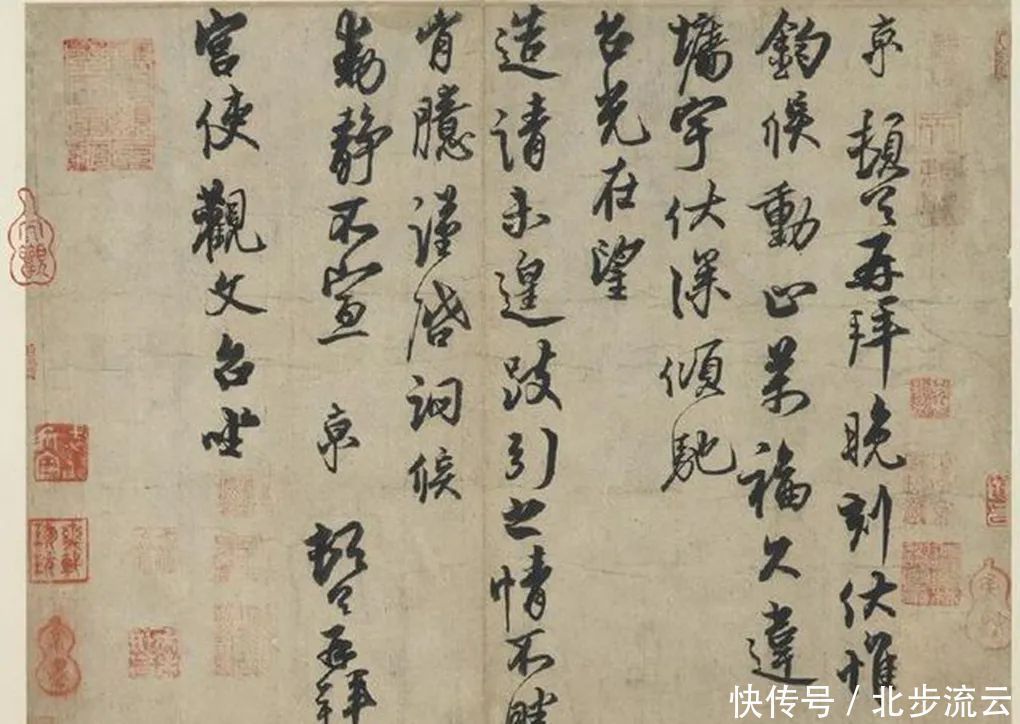 京頓首再拜晚刻伏惟
鈞候動止萬福久違
墉宇伏深傾馳
台光在望
造請未遑跂引之情不勝
胷臆謹啓詗候
動靜不宣 京 頓首再拜
宮使觀文台坐
快传号 / 北步流云